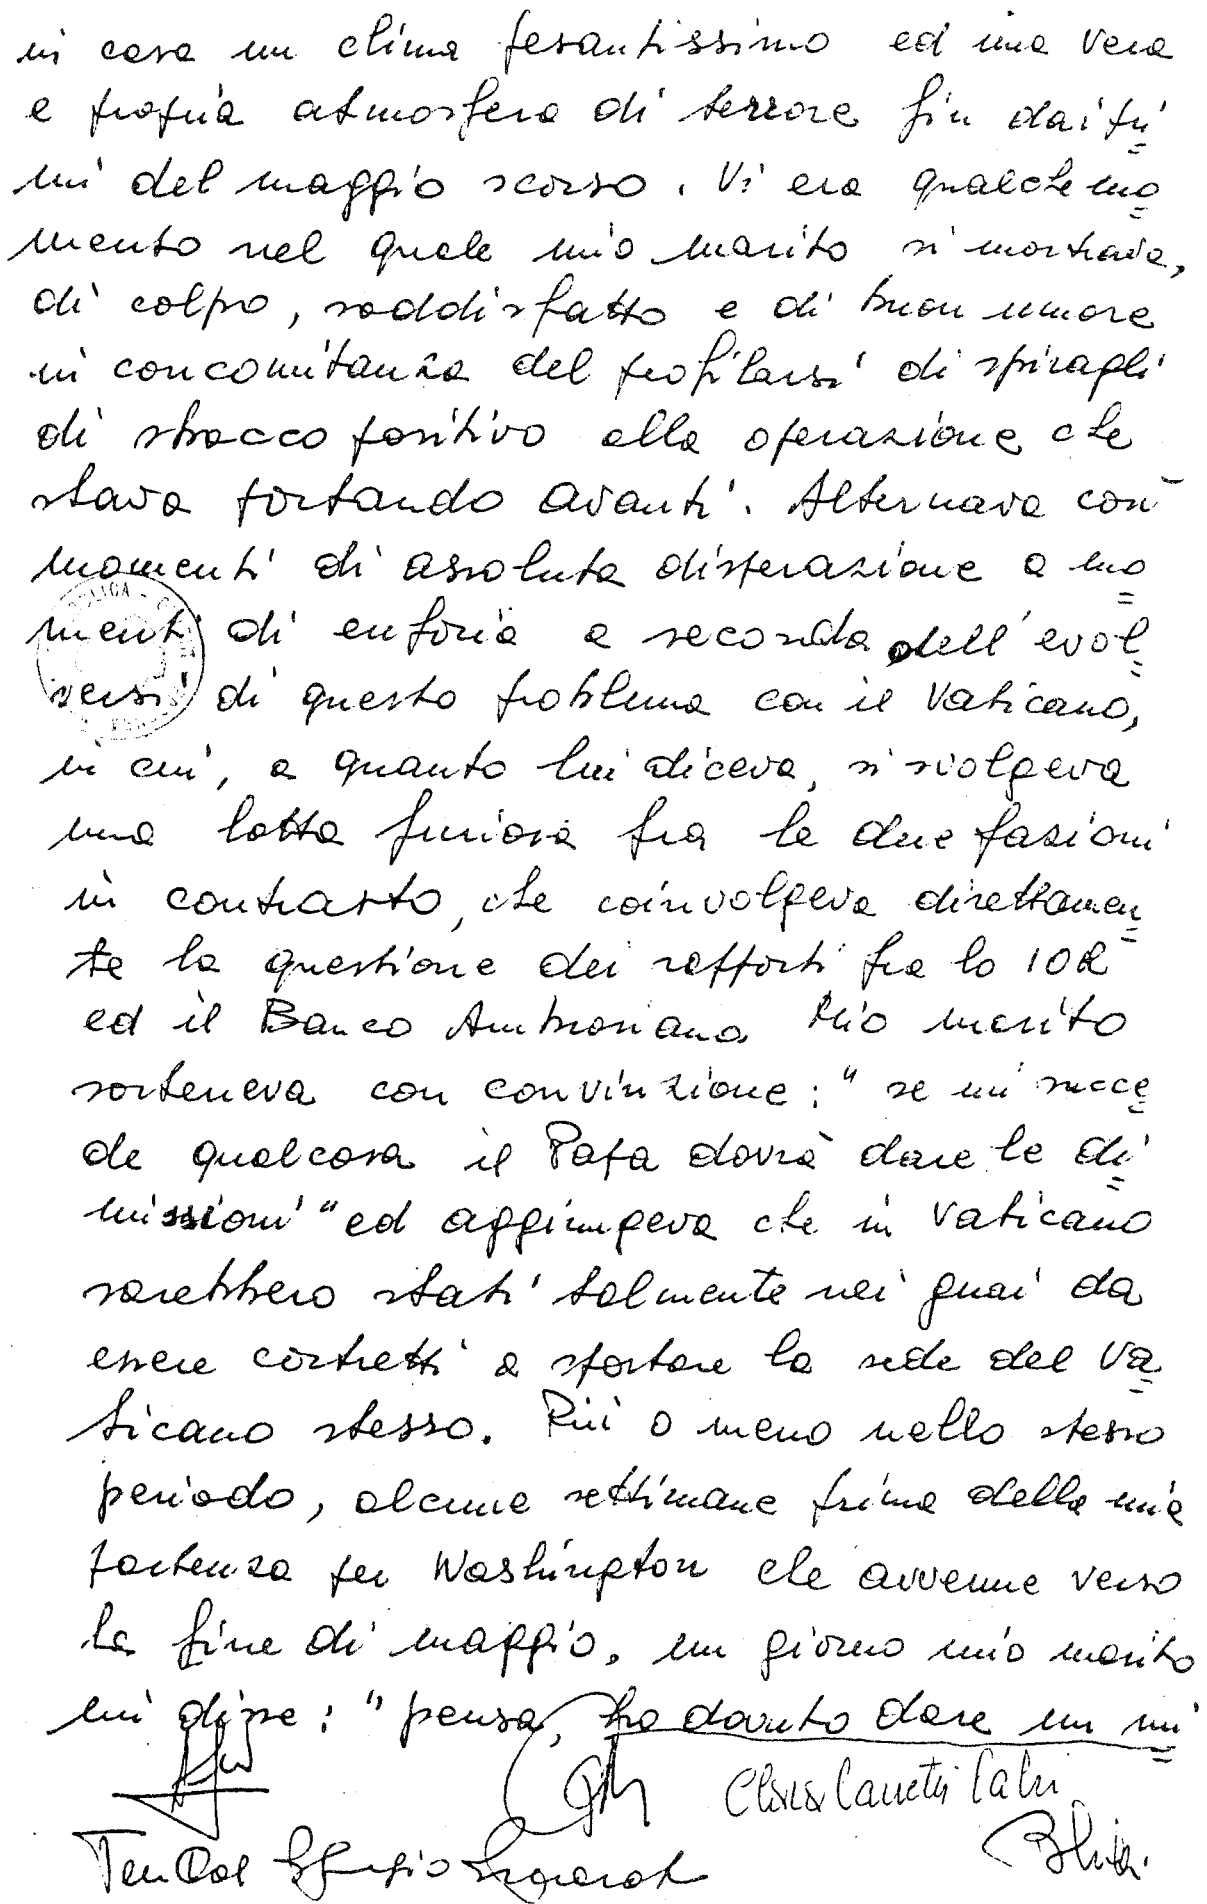 in casa un clima pesantissimo ed una vera
e propria atmosfera di terrore fin dai pri
mi del maggio scorso. Vi era qualche mo
mento nel quale mio marito si mostrava,
di colpo, soddisfatto e di buon umore
in concomitanza del profilarsi di spiragli
di sbocco positivo alla operazione che
stava portando avanti. Alternava con
momenti di assoluta disperazione a mo
menti di euforia a seconda dell'evol
versi di questo problema con il Vaticano,
in cui, a quanto lui diceva, si svolgeva
una lotta furiosa fra le due fazioni
in contrasto, che coinvolgeva direttamen
te la questione dei rapporti fra lo IOR
ed il Banco Ambrosiano. Mio marito
sosteneva con convinzione: "se mi succe
de qualcosa il Papa dovrà dare le di
missioni" ed aggiungeva che in Vaticano
sarebbero stati talmente nei guai da
essere costretti a spostare la sede del Va
ticano stesso. Più o meno nello stesso
periodo, alcune settimane prima della mia
partenza per Washington che avvenne verso
la fine di maggio, un giorno mio marito
mi disse: "pensa, ho dovuto dare un mi
Clara Canetti Calvi
Ten Col